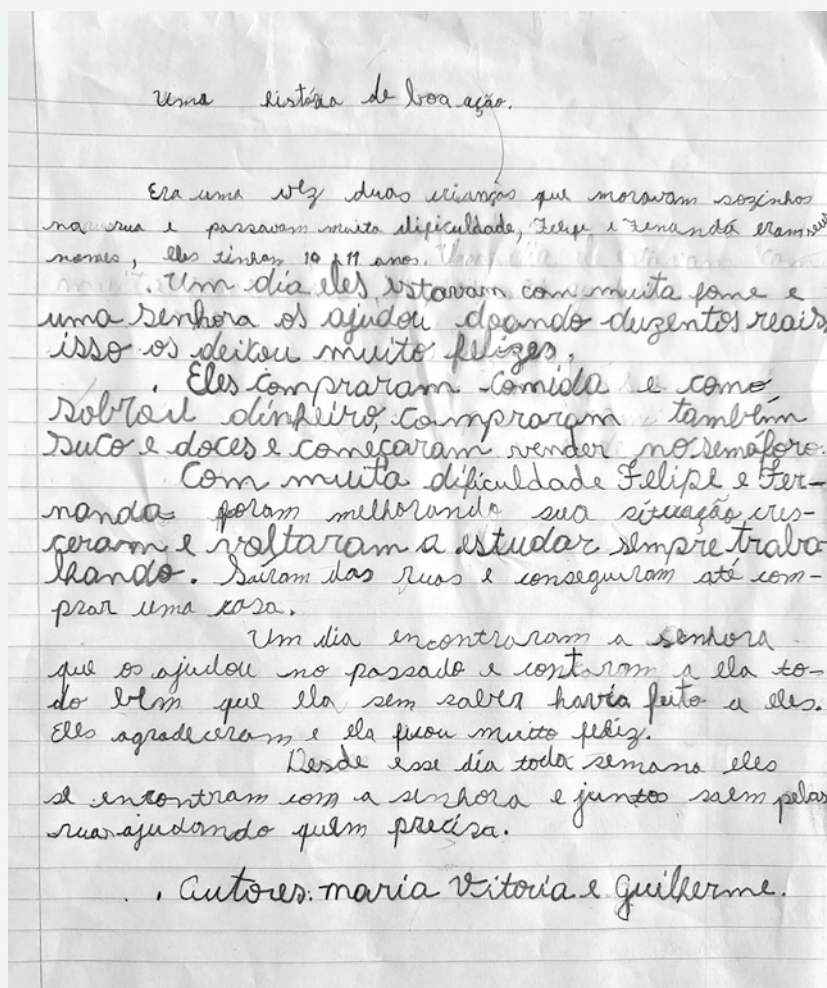 Uma história de boa ação.
Era uma vez duas crianças que moravam sozinhos
na rua e passavam muita dificuldade, Felipe e Fernanda eram seus
nomes, eles tinham 10 e 11 anos.
Um dia eles estavam com muita fome e
uma senhora os ajudou doando duzentos reais,
isso os deixou muito felizes.
Eles compraram comida e como
sobrou dinheiro, compraram também
suco e doces e começaram vender no semáforo.
Com muita dificuldade Felipe e Fer-
nanda foram melhorando sua situação cres-
ceram e voltaram a estudar sempre traba
lhando. Saíram das ruas e conseguiram até com-
prar uma casa.
Um dia encontraram a senhora
que os ajudou no passado e contaram a ela to-
do bem que ela sem saber havia feito a eles.
Eles agradeceram e ela ficou muito feliz.
Desde esse dia toda semana eles
se encontram com a senhora e juntos saem pelas
ruas ajudando quem precisa.
Autores: maria Vitoria e Guilherme.